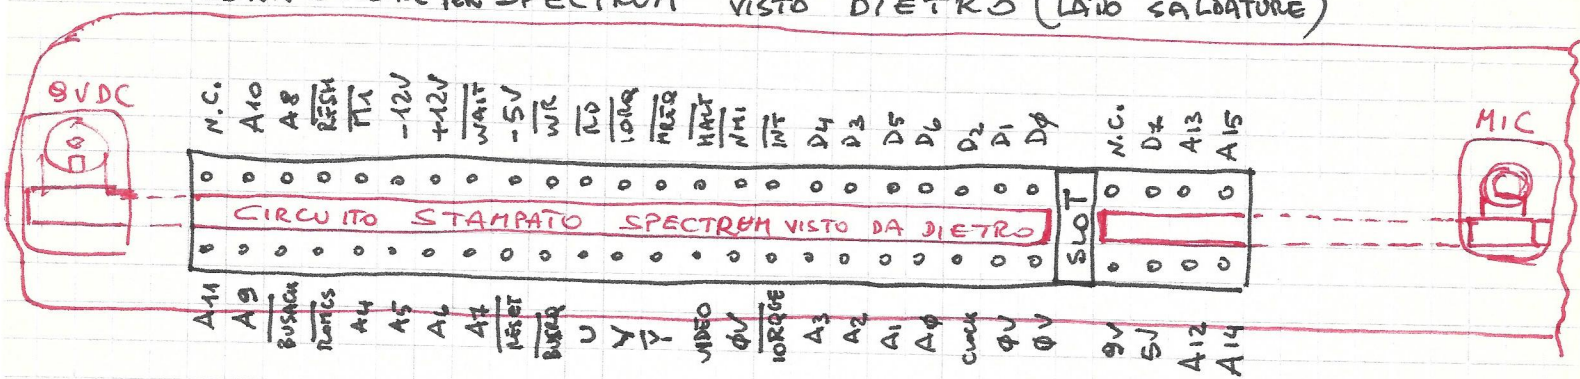 SPECTRUM VISTO DIETRO (LATO SALDATURE)
9VDC
N.C. A10 A8 RFSH M1 -12V +12V WAIT -5V WR RD IORQ MREQ HALT NMI INT D4 D3 D5 D6 D2 D1 DØ N.C. D7 A13 A15
MIC
CIRCUITO STAMPATO SPECTRUM VISTO DA DIETRO
SLOT
A11 A9 BUSACK ROMCS A4 A5 A6 A7 RESET BUSRQ U V Y VIDEO ØV IORQGE A3 A2 A1 AØ CLOCK ØV ØV 9V 5V A12 A14